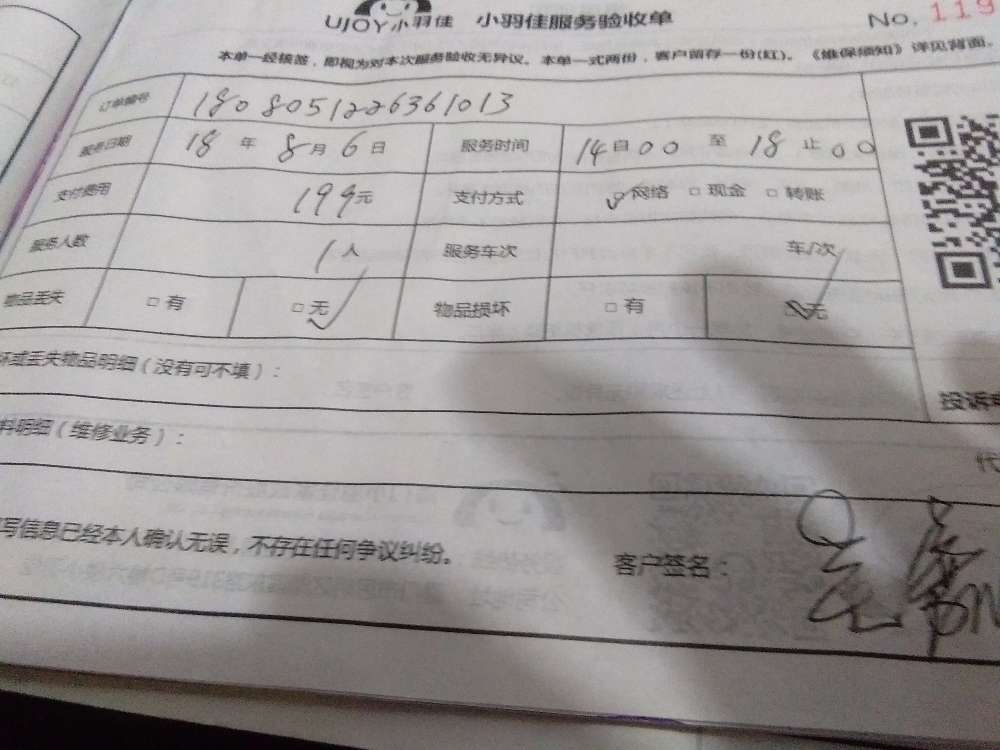 UJOY小羽佳 小羽佳服务验收单 No. 119
本单一经核签，即视为对本次服务验收无异议。本单一式两份，客户留存一份(红)。《维保须知》详见背面。
订单编号 1808051226361013
服务日期 18 年 8 月 6 日 服务时间 14 自 00 至 18 止 00
支付费用 199元 支付方式 ☑网络 □现金 □转账
服务人数 1人 服务车次 车/次
物品丢失 □有 ☑无 物品损坏 □有 ☑无
坏或丢失物品明细（没有可不填）：
投诉
料明细（维修业务）：
代
写信息已经本人确认无误，不存在任何争议纠纷。
客户签名：